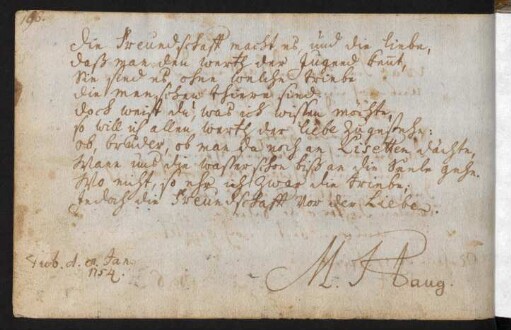 166.
Die Freundschafft macht es, und die Liebe,
daß man den werth der Jugend kennt,
Sie sind es ohne welche triebe
die menschen thiere sind.
doch weist du, was ich wissen möchte,
so will ich allen werth der liebe zugestehn:
ob, brüder, ob man da noch an Lisetten dächte,
Wann uns die wasser schon biß an die Seele gehn.
Wo nicht, so ehr ich zwar die triebe,
jedoch die Freundschafft vor der Liebe.
d. 20. Jan.
1754.
M. Haug.